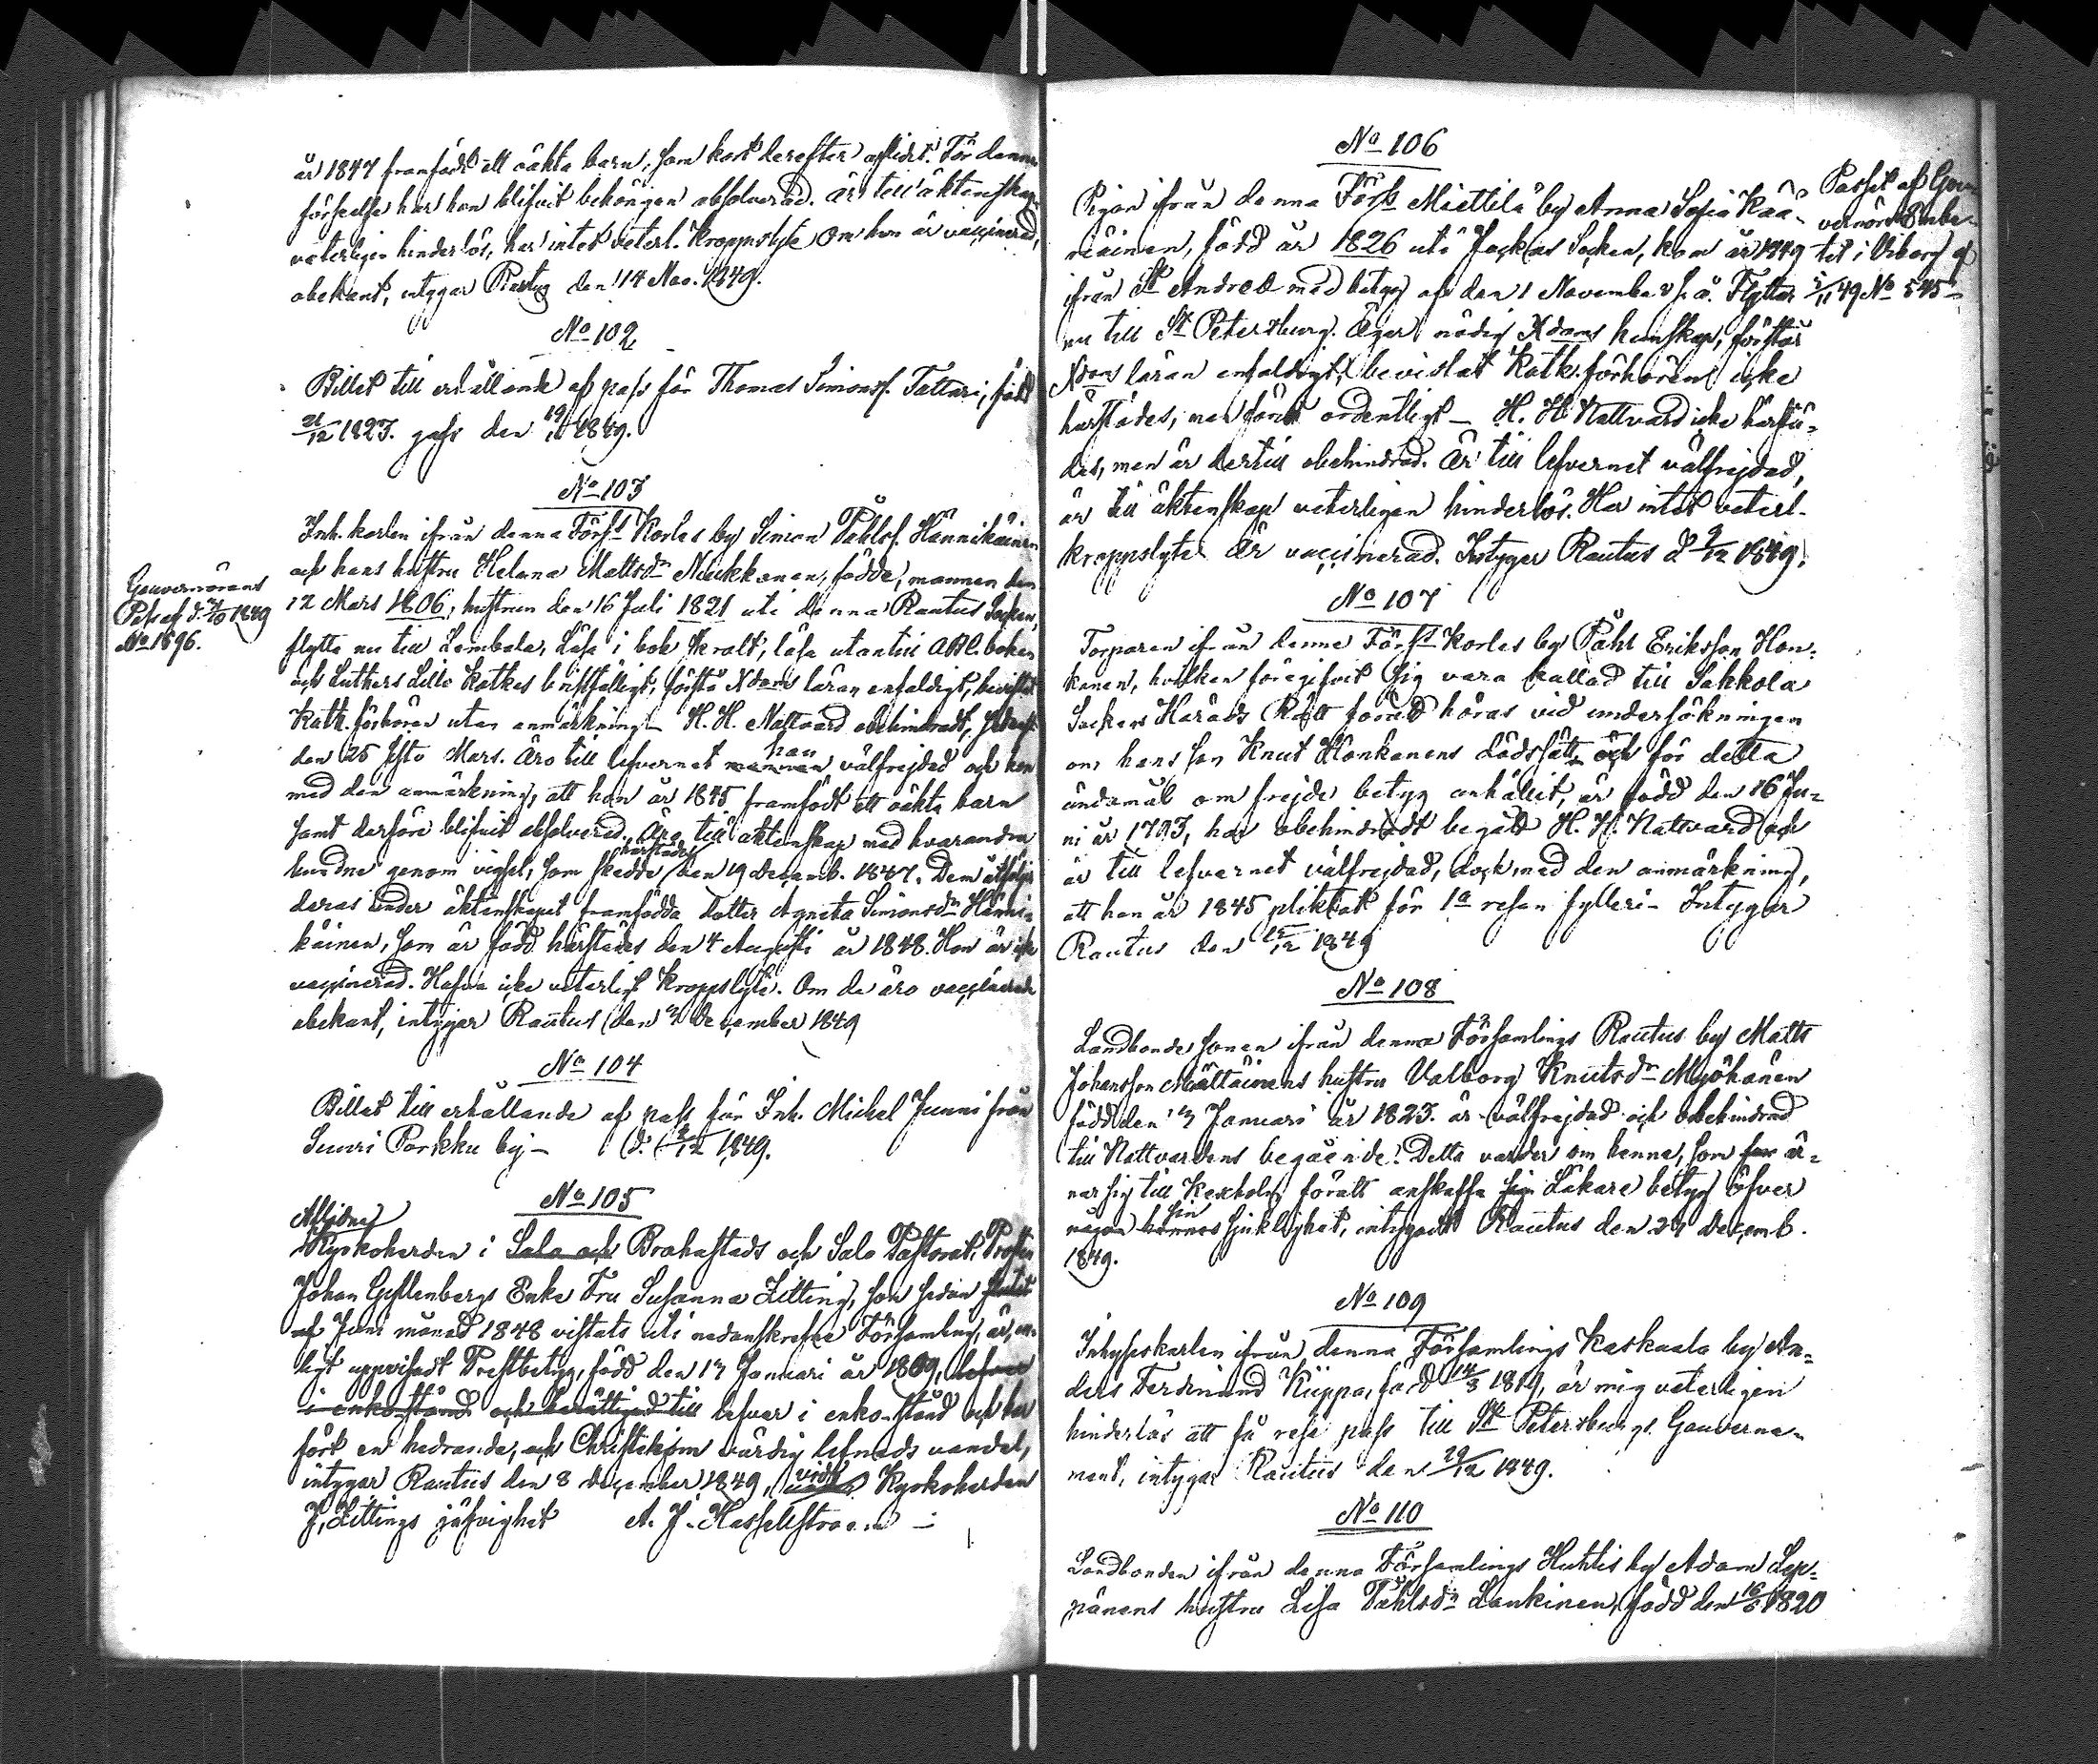 år 1847 framfödt ett oäkta barn, som kort derefter aflidit. För denna
förseelse har hon blifvit behörigen absolverad. Är till äktenskap
veterligen hinderlös, har intet veterl. kroppslyte Om hon är vaccinerad,
obekant, intygar Rautus den 14 Nov. 1849.
No 102
Billet till erhållande af pass för Thomas Simonss. Tattari, född
21/12 1823. gafs den 19/11 1849.
No 103
Inh. karlen ifrån denna Förs. Korles by Simon Påhlss. Hännikäinen
och hans hustru Helena Mattsdr Nuukkanen, födde, mannen den
12 Mars 1806, hustrun den 16 Juli 1821 uti denna Rautus Socken,
flytta nu till Lembala, Läsa i bok skralt, läsa utantill ABC boken
och Luthers Lilla Katkes bristfälligt, förstå Xdoms läran enfaldigt, bevistat
Katk. förhören utan anmärkning H. H. Nattvard obehindradt, sednast
den 25 sistl. Mars. Äro till lefvernet mannen han välfrejdad och hon
med den anmärkning, att hon år 1845 framfödt ett oäkta barn
samt derföre blifvit absolverad. Äro till äktenskap med hvarandra
bundne genom vigsel, som skedde härstädes den 19 Decemb. 1847. Dem åtföljer
deras under äktenskapet framfödda dotter Agneta Simonsdr Hänni-
käinen, som är född härstädes den 4 Augusti år 1848. Hon är icke
vaccinerad. Hafva icke veterligt kroppslyte. Om de äro vaccinerade
obekant, intygar Rautus den 3 December 1849
Gouvernörens
Pass af d. 1849
No 1896.
No 104
Billet till erhållande af pass för Inh. Michel Junni från
Suuri Porkku by – d. 3/12 1849.
No 105
Aflidne
Kyrkoherden i Salo och Brahestads och Salo Pastorat, Prosten
Johan Gyllenbergs Enka Fru Susanna Zitting, som sedan slutet
af Juni månad 1848 vistats uti nedanskrefne Församling, är, en-
ligt uppvisadt Prestbetyg, född den 13 Januari år 1809, lefver
i enkostånd och berättigad till lefver i enkostånd och har
fört en hedrande, och Christeligom värdig lefnads vandel,
intygar Rautus den 8 December 1849, vid Kyrkoherden
J. Zittings jäfvighet A. J. Hasselstroem –
No 106
Pigan ifrån denna Förs. Miettilä by Anna Sofia Kää-
riäinen, född år 1826 uti Jockas Socken, kom år 1849
ifrån St Andreæ med betyg af den 1 November s. å. Flyttar
nu till St Petersburg. Äger nödig Xdoms kunskap, förstår
Xdoms läran enfaldigt, bevistat Katk. förhören icke
härstädes, men förut ordentligt – H. H. Nattvard icke härstä-
des, men är dertill obehindrad. Är till lefvernet välfrejdad,
är till äktenskap veterligen hinderlös. Har intet veterl.
kroppslyte Är vaccinerad. Intygar Rautus d 9/12 1849.
Passet af Gou-
vernörs Embe-
tet i Viborg af
5/11 49 No 545
No 107
Torparen ifrån denna Förs. Korles by Påhl Eriksson Hon-
kanen, hvilken föregifvit sig vara kallad till Sakkola
Sockens Härads Rätt föratt höras vid undersökningen
om hans son Knut Honkanens dödssätt och för detta
ändamål om frejde betyg anhållit, är född den 16 Ju-
ni år 1793, har obehindradt begått H. H. Nattvard och
är till lefvernet välfrejdad, dock med den anmärkning,
att han år 1845 pliktat för 1a resan fylleri – Intygar
Rautus den 12/12 1849
No 108
Landbonde sonen ifrån denna Församlings Rautus by Matts
Johansson Määttäinens hustru Valborg Knutsdr Myöhänen
född den 3 Januari år 1823. är välfrejdad och obehindrad
till Nattvardens begående. Detta varder om henne, som är-
nar sig till Kexholm föratt anskaffa sig Läkare betyg öfver
någon hennes sin sjuklighet, intygadt Rautus den 27 Decemb.
1849.
No 109
Inhyseskarlen ifrån denna Församlings Kaskaala by An-
ders Ferdinand Kiuppa, född 14/3 1819, är mig veterligen
hinderlös att få rese pass till St Petersburgs Gouverne-
ment, intygar Rautus den 29/12 1849.
No 110
Landbonden ifrån denna Församlings Huhtis by Adam Lep-
pänens hustru Lisa Påhlsdr Lankinen, född den 16/5 1820